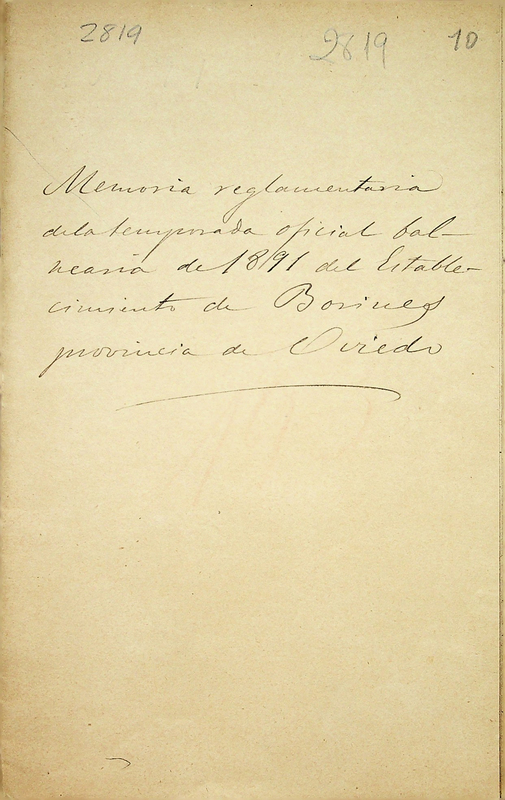 2819 2819 10
Memoria reglamentaria
de la temporada oficial bal-
nearia de 1891 del Estable-
cimiento de Borines
provincia de Oviedo